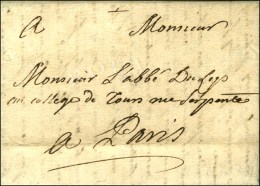 A Monsieur
Monsieur L'abbé
au college de Tours rue Serpente
a Paris